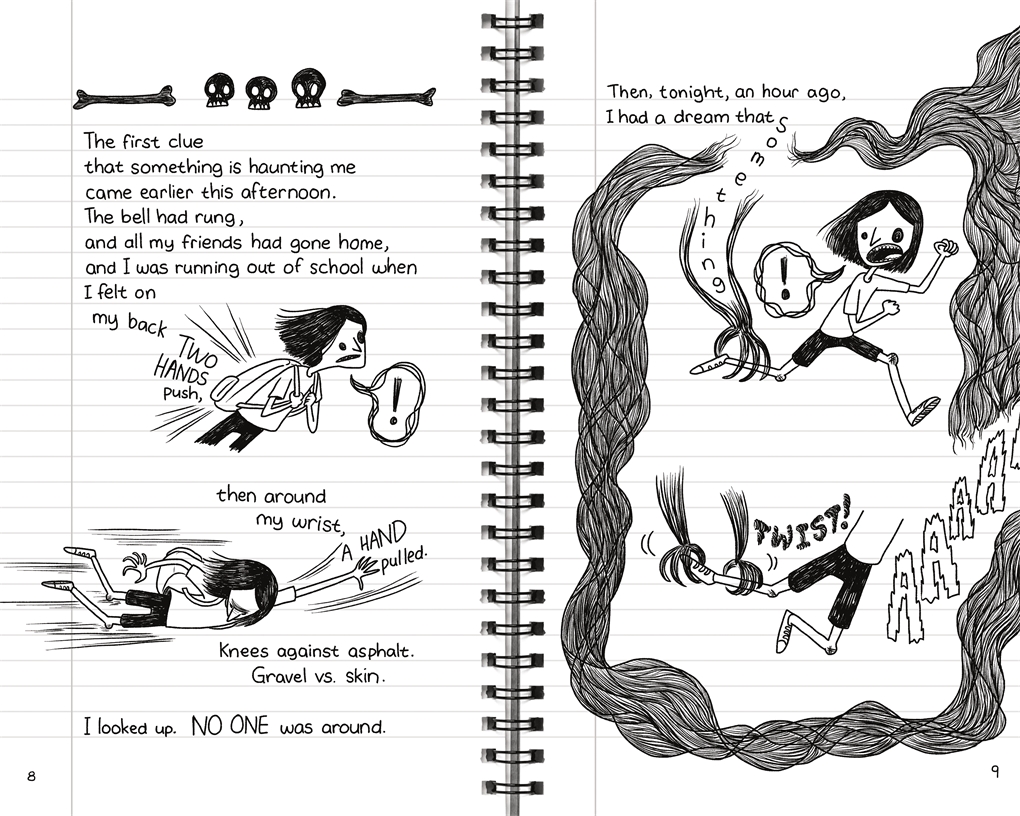 The first clue
that something is haunting me
came earlier this afternoon.
The bell had rung,
and all my friends had gone home,
and I was running out of school when
I felt on
my back
TWO
HANDS
push,
!
then around
my wrist,
A HAND
pulled.
Knees against asphalt.
Gravel vs. skin.
I looked up. NO ONE was around.
8
Then, tonight, an hour ago,
I had a dream that
Something
!
TWIST!
AAAAA
9